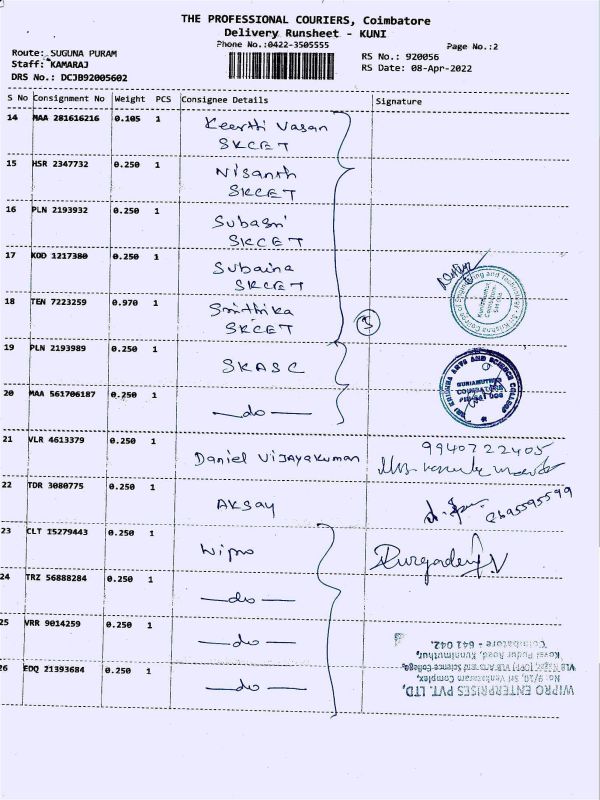 THE PROFESSIONAL COURIERS, Coimbatore
Delivery Runsheet - KUNI
Phone No.:0422-3505555
Page No.:2
Route: SUGUNA PURAM
Staff: KAMARAJ
DRS No.: DCJB92005602
RS No.: 920056
RS Date: 08-Apr-2022
S No Consignment No Weight PCS Consignee Details Signature
14 MAA 281616216 0.105 1 Keerthi Vasan
SKCET
15 HSR 2347732 0.250 1 Nisanth
SKCET
16 PLN 2193932 0.250 1 Subasri
SKCET
17 KOD 1217380 0.250 1 Subaina
SKCET
18 TEN 7223259 0.970 1 Smithika
SKCET
5
19 PLN 2193989 0.250 1 SKASC
SRI KRISHNA ARTS AND SCIENCE COLLEGE
KUNIAMUTHUR
COIMBATORE
20 MAA 561706187 0.250 1 do
21 VLR 4613379 0.250 1 Daniel Vijayakumar
9940722405
22 TDR 3080775 0.250 1 Aksay
23 CLT 15279443 0.250 1 Wipro
Durgadevi V
24 TRZ 56888284 0.250 1 do
25 VRR 9014259 0.250 1 do
26 EDQ 21393684 0.250 1 do
WIPRO ENTERPRISES PVT. LTD,
No: 9/10, Sri Venkateswara Complex,
VLB Nagar, [OPP] VLB Arts and Science College,
Kovai Pudur Road, Kuniamuthur,
Coimbatore - 641 042.